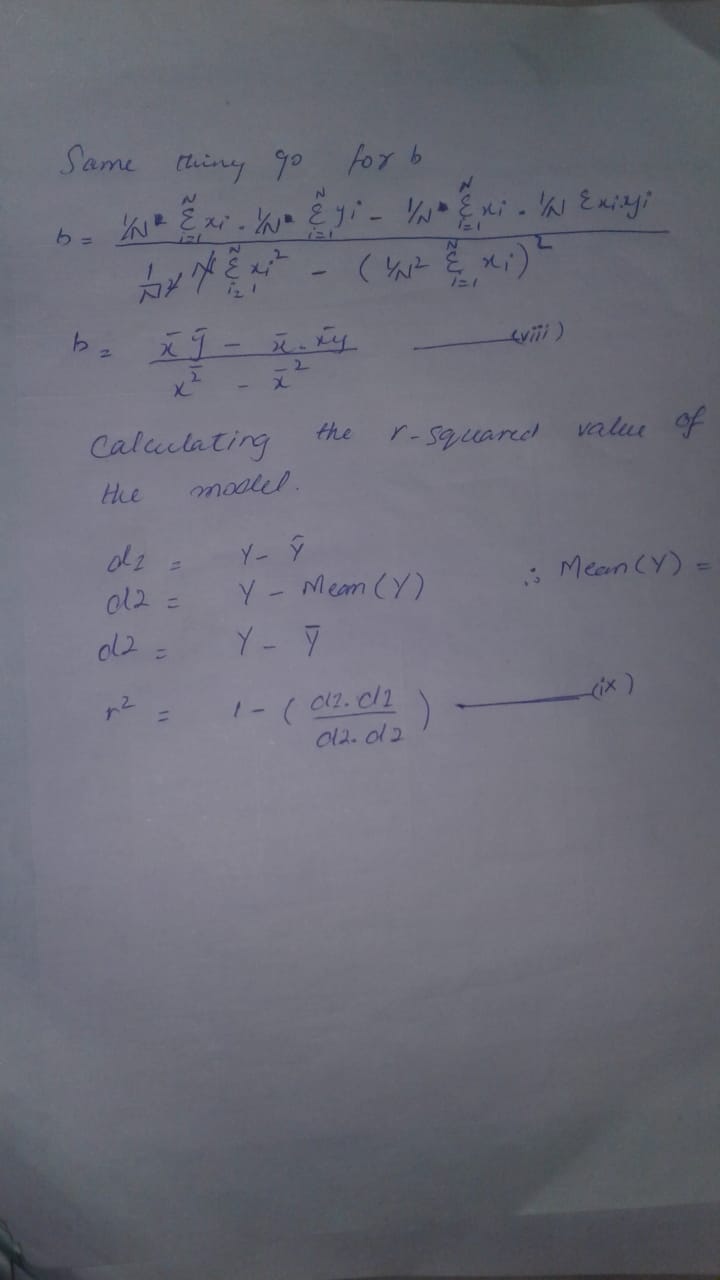 Same thing go for b
b = 1/N Σ_{i=1}^{N} xi . 1/N Σ_{i=1}^{N} yi - 1/N Σ_{i=1}^{N} xi . 1/N Σxi.yi / 1/N² N Σ_{i=1}^{N} xi² - (1/N² Σ_{i=1}^{N} xi)²
b = x̄ ȳ - x̄ . x̄y / x̄² - x̄² (viii)
Calculating the r-squared value of
the model.
d1 = Y - Ŷ
d2 = Y - Mean(Y) ∴ Mean(Y) =
d2 = Y - Ȳ
r² = 1 - ( d1.d1 / d2.d2 ) (ix)